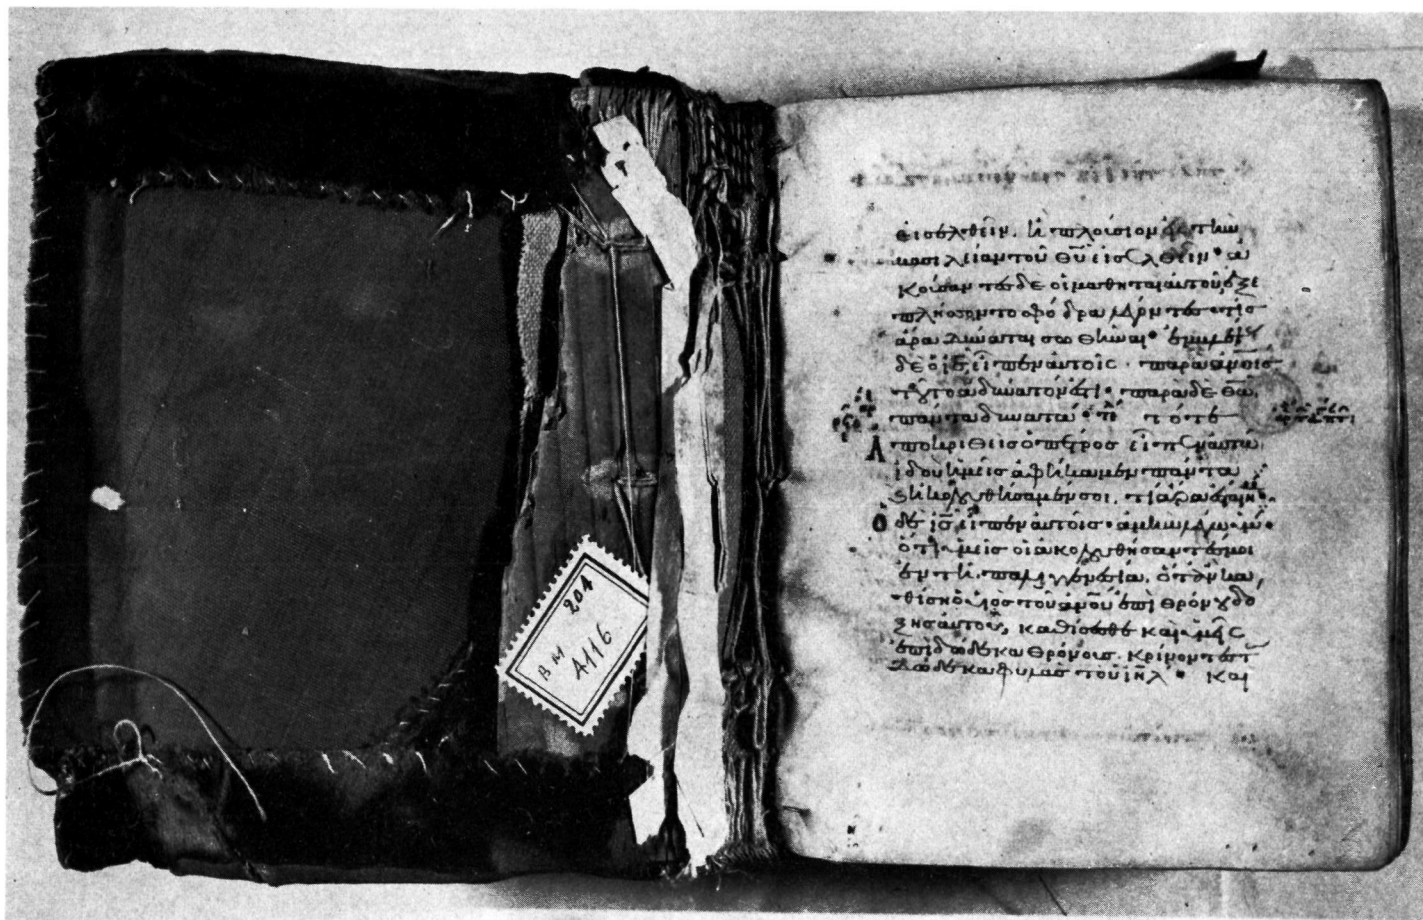 201
BM
A116
εἰσελθεῖν. ἢ πλούσιον εἰς τὴν
βασιλείαν τοῦ θῦ εἰσελθεῖν· ἀ
κούσαντες δὲ οἱ μαθηταὶ αὐτοῦ, ἐξε
πλήσσοντο σφόδρα λέγοντες· τίς
ἄρα δύναται σωθῆναι·
δὲ ὁ ις εἶπεν αὐτοῖς· παρὰ ἀνοις
τοῦτο ἀδύνατόν ἐστι· παρὰ δὲ θω
πάντα δυνατά· τότε
Ἀποκριθεὶς ὁ πέτρος εἶπεν αὐτῷ,
ἰδοὺ ἡμεῖς ἀφήκαμεν πάντα
καὶ ἠκολουθήσαμέν σοι. τί ἄρα ἔσται
ὁ δὲ ις εἶπεν αὐτοῖς· ἀμὴν λέγω ὑμῖν·
ὅτι ὑμεῖς οἱ ἀκολουθήσαντές μοι
ἐν τῇ παλιγγενεσίᾳ, ὅταν κα
θίσῃ ὁ υἱὸς τοῦ ανου ἐπὶ θρόνου δό
ξης αὐτοῦ, καθίσεσθε καὶ ὑμεῖς
ἐπὶ δώδεκα θρόνους. κρίνοντες τ
δώδεκα φυλὰς τοῦ ιηλ· Καὶ